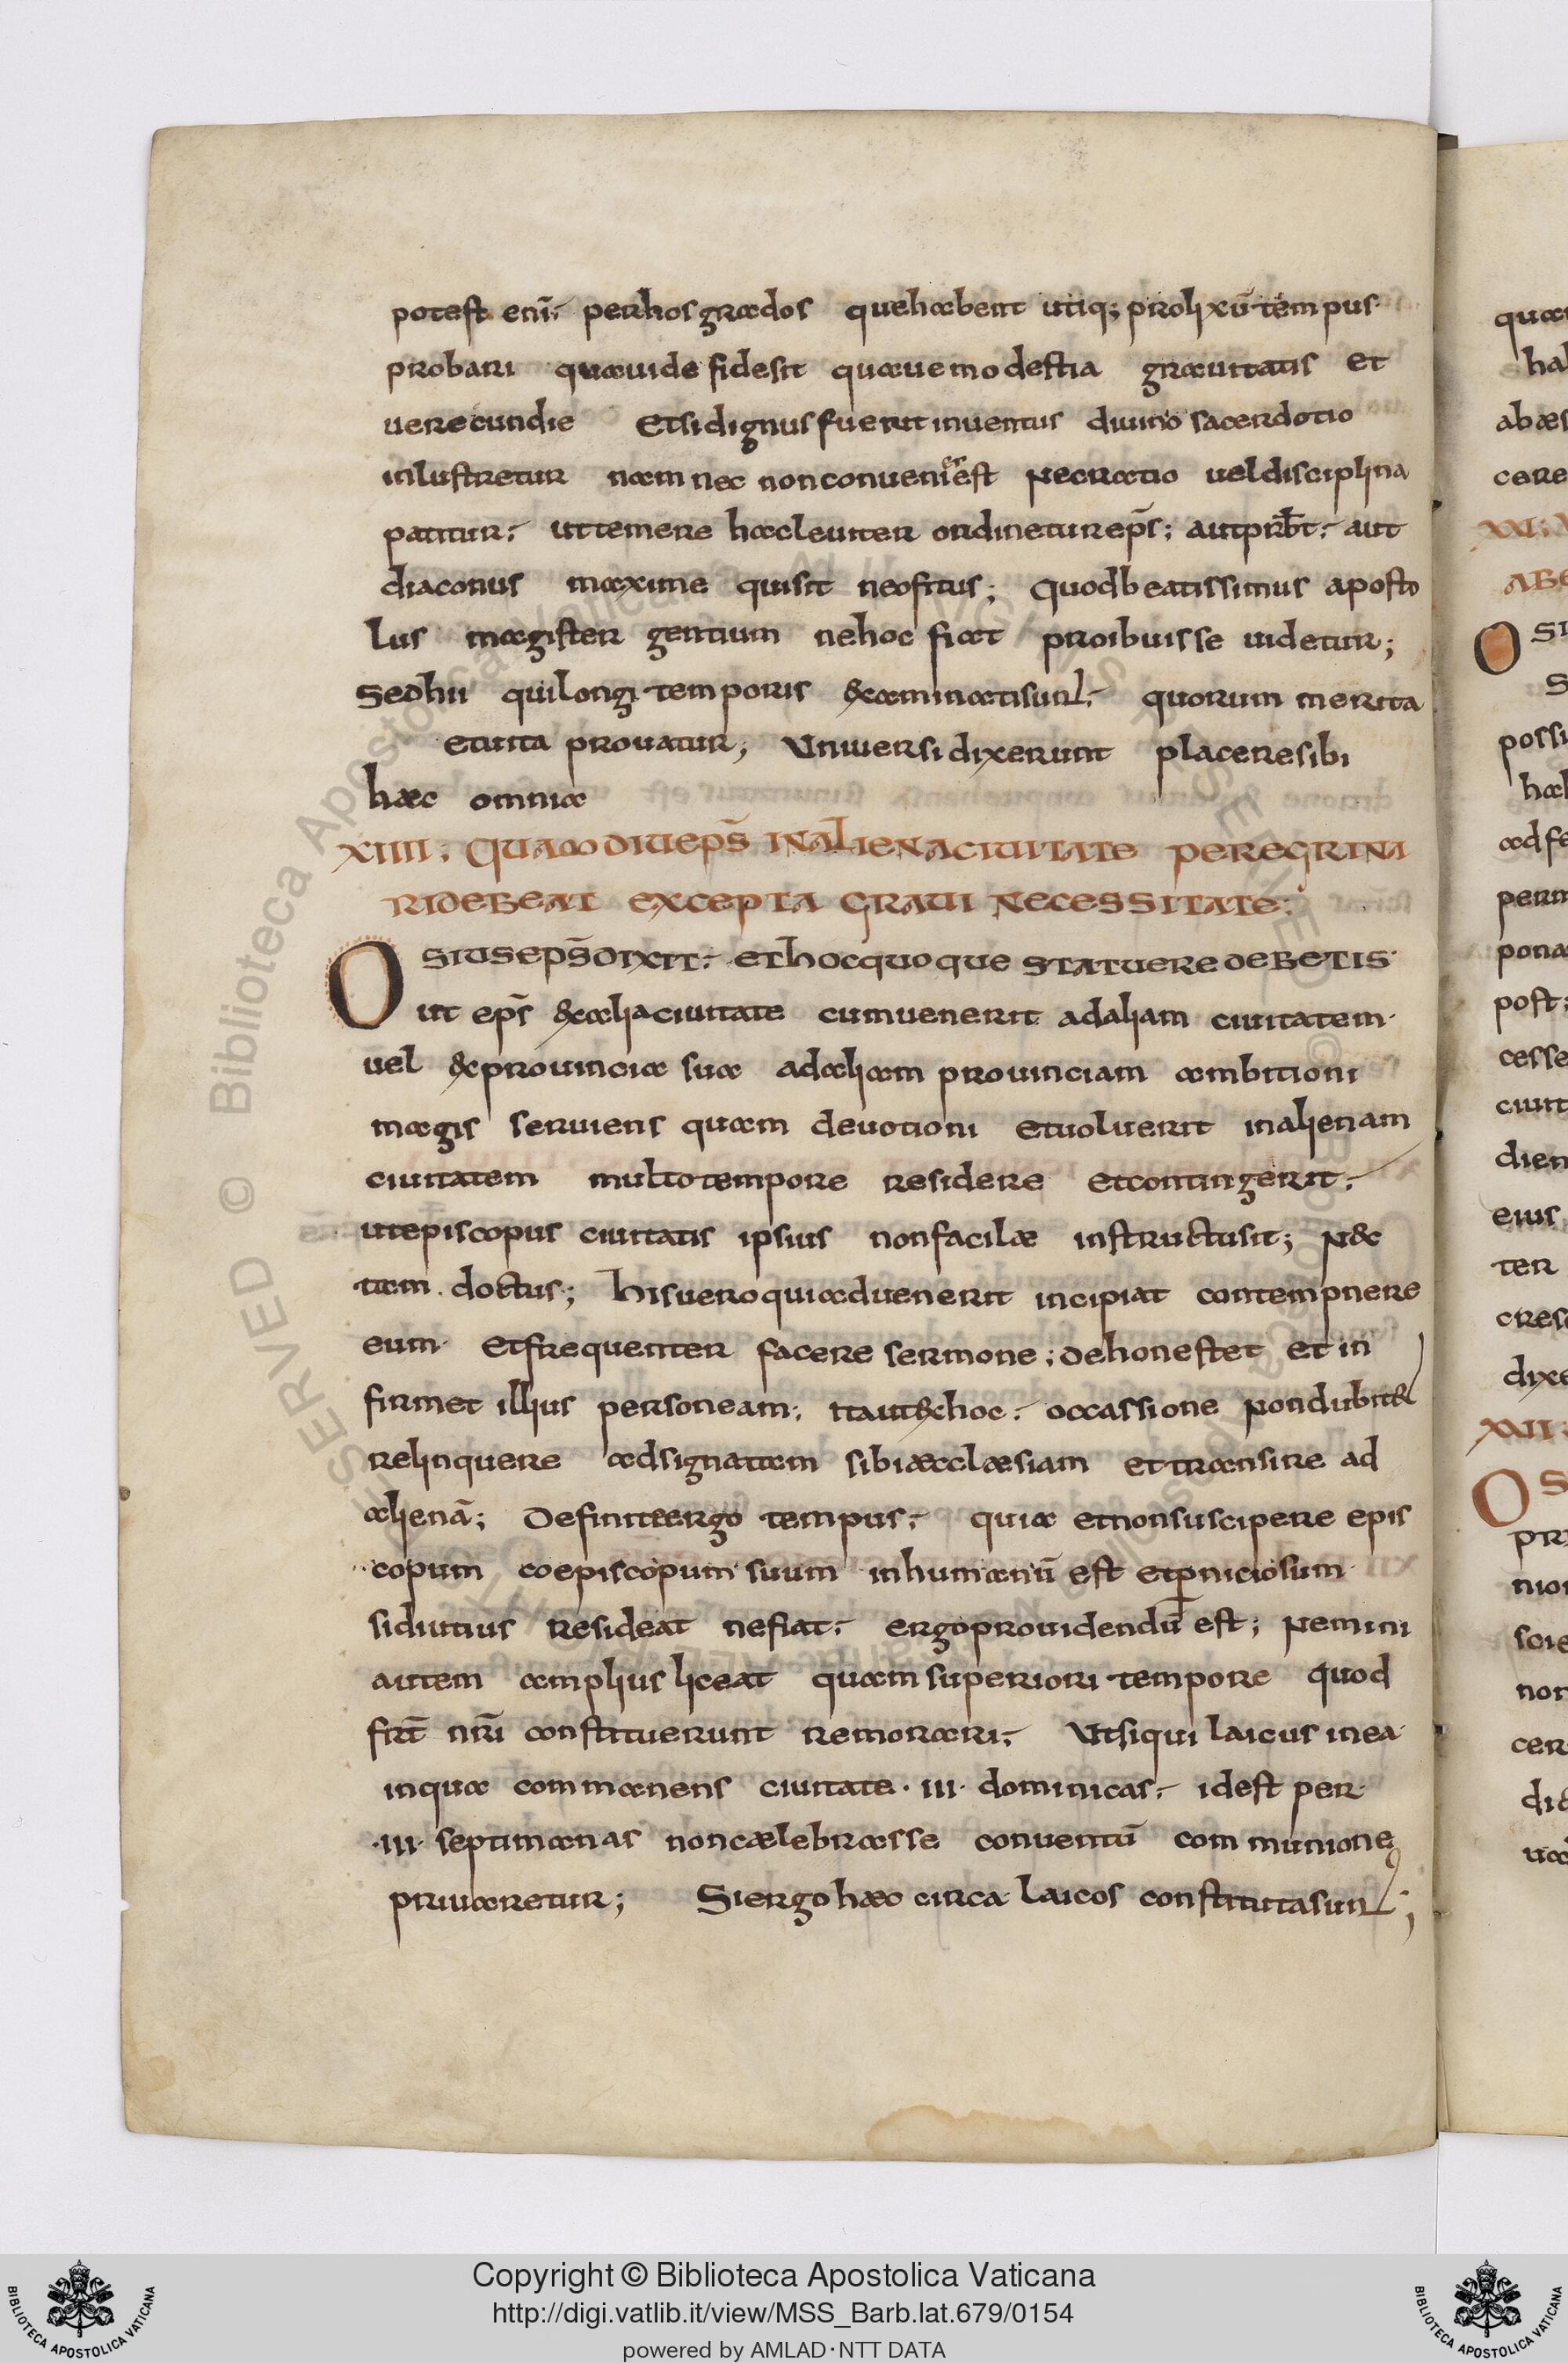 potest eni͞; per hos gradus que habent utiq; prolixu͞ tempus
probari quauide fide sit quaue modestia grauitatis et
uerecundie Et si dignus fuerit inuentus diuino sacerdotio
inlustretur nam nec non conueniens est Nec ratio uel disciplina
patitur; ut temere hac leuiter ordinetur ep͞s; aut prb͞t; aut
diaconus maxime qui sit neofitus; quod beatissimus aposto
lus magister gentium ne hoc fiat proibuisse uidetur;
sed hii qui longi temporis examinati sunt; quorum merita
et uita prouatur; Uniuersi dixerunt placere sibi
hæc omnia
XIIII; QUAMDIU EP͞S IN ALIENA CIUITATE PEREGRINA
RI DEBEAT EXCEPTA GRAUI NECESSITATE;
OSIUS EP͞S DIXIT; ET HOC QUOQUE STATUERE DEBETIS
ut ep͞s ex alia ciuitate cum uenerit ad aliam ciuitatem
uel ex prouincia sua ad aliam prouinciam ambitioni
magis seruiens quam deuotioni et uoluerit in alienam
ciuitatem multo tempore residere et contingerit;
ut episcopus ciuitatis ipsius non facilæ instructus sit; Nec
tam doctus; his uero qui aduenerit incipiat contempnere
eum et frequenter facere sermone; dehonestet et in
firmet illius personeam; ita ut ex hoc; occassione Non dubitet
relinquere adsignatam sibi æcclæsiam et transire ad
aliena͞; Definite ergo tempus; quia et non suscipere epis
copum coepiscopum suum inhumanu͞ est et p̱niciosum
si diutius resideat ne fiat; ergo prouidendu͞ est; Nemini
autem amplius liceat quam superiori tempore quod
frt͞ nr͞i constituerunt remorari; Ut si qui laicus in ea
in qua commanens ciuitate · III · dominicas; id est per
· III · septimanas non cælebrasse conuentu͞ communione
priuaretur; Si ergo hæc circa laicos constituta sunt;
quæ
abæs
cere
XXI;
ABE
possi
perm
pona
post;
cesse
ciuit
dien
eius
ter
cresc
dixe
XXII;
nior
scie
non
cer
Copyright © Biblioteca Apostolica Vaticana
http://digi.vatlib.it/view/MSS_Barb.lat.679/0154
powered by AMLAD·NTT DATA
BIBLIOTECA APOSTOLICA VATICANA
BIBLIOTECA APOSTOLICA VATICANA